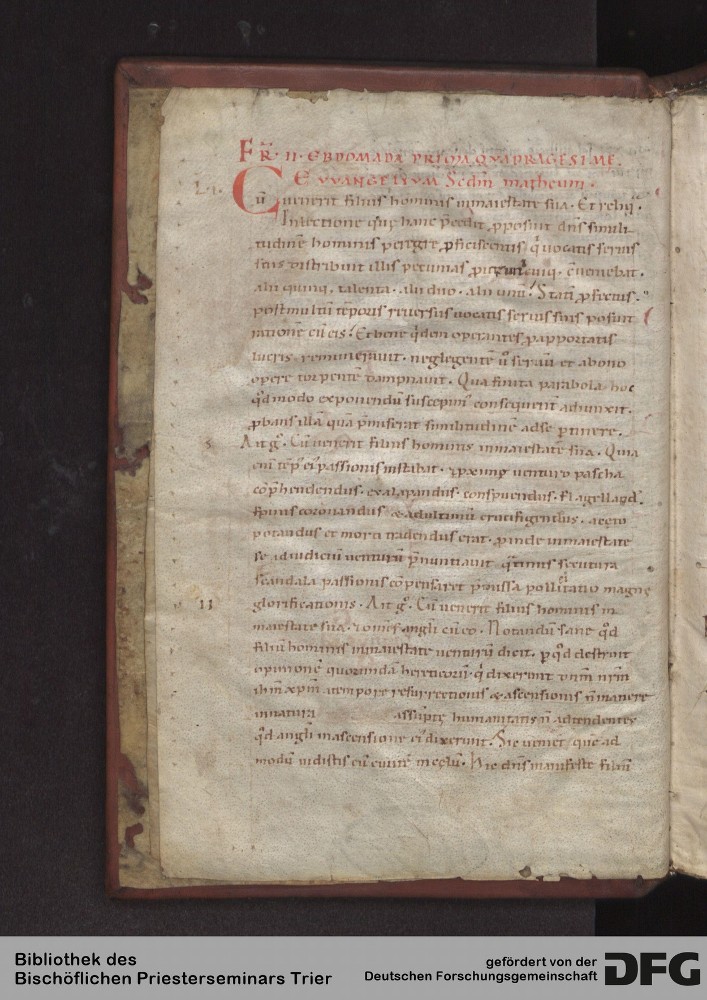 FR̄· II· EBDOMADA PRIMA QVADRAGESIME.
EVVANGELIVM Scdm matheum.
Li. Cū uenerit filius hominis in maiestate sua. Et reliq̄.
In lectione que hanc p̄cedit, pposuit dn̄s simili
tudinē hominis peregre pficiscentis, q̄ uocatis seruis
suis distribuit illis pecunias, cuiq; cūueniebat.
alii quinq; talenta. alii duo. alii unū. Statī pfectus.
post multū tēporis reuersus uocatis seruis suis posuit
rationē cū eis. Et bene q̄dem operantes, papportatis
lucris remunerauit. neglegentē ū seruū et a bono
opere torpentē dampnauit. Qua finita parabola hoc
qd modo exponendū suscepimꝰ consequent̄ adiunxit.
pbans illā quā p̄miserat similitudinē ad se ptinere.
s Ait g̊. Cū uenerit filius hominis in maiestate sua. Quia
enī tēpꝰ eiꝰ passionis instabat. uenturo pascha
cōp̄hendendus. exalapandus. conspuendus. flagellandꝰ.
spinis coronandus & ad ultimū crucifigendus. aceto
potandus et morti tradendus erat. pinde in maiestate
se ad iudiciū uenturū p̄nuntiauit. q̄tinus secutura
scandala passionis cōpensaret p̄missa pollicitatio magnę
II glorificationis. Ait g̊. Cū uenerit filius hominis in
maiestate sua. & om̄s angl̄i cū eo. Notandū sane qd
filiū hominis in maiestate uenturū dicit. p qd destruit
opinionē quorundā hereticorū. q̄ dixerunt dn̄m nr̄m
ih̄m xp̄m a tempore resurrectionis & ascensionis n̄ manere
in natura assūptę humanitatis n̄ adtendentes
qd angl̄i in ascensione eiꝰ dixerunt. Sic ueniet quē ad
modū uidistis eū euntē in cęlū. Hic dn̄s manifeste filiū
Bibliothek des
Bischöflichen Priesterseminars Trier
gefördert von der
Deutschen Forschungsgemeinschaft
DFG